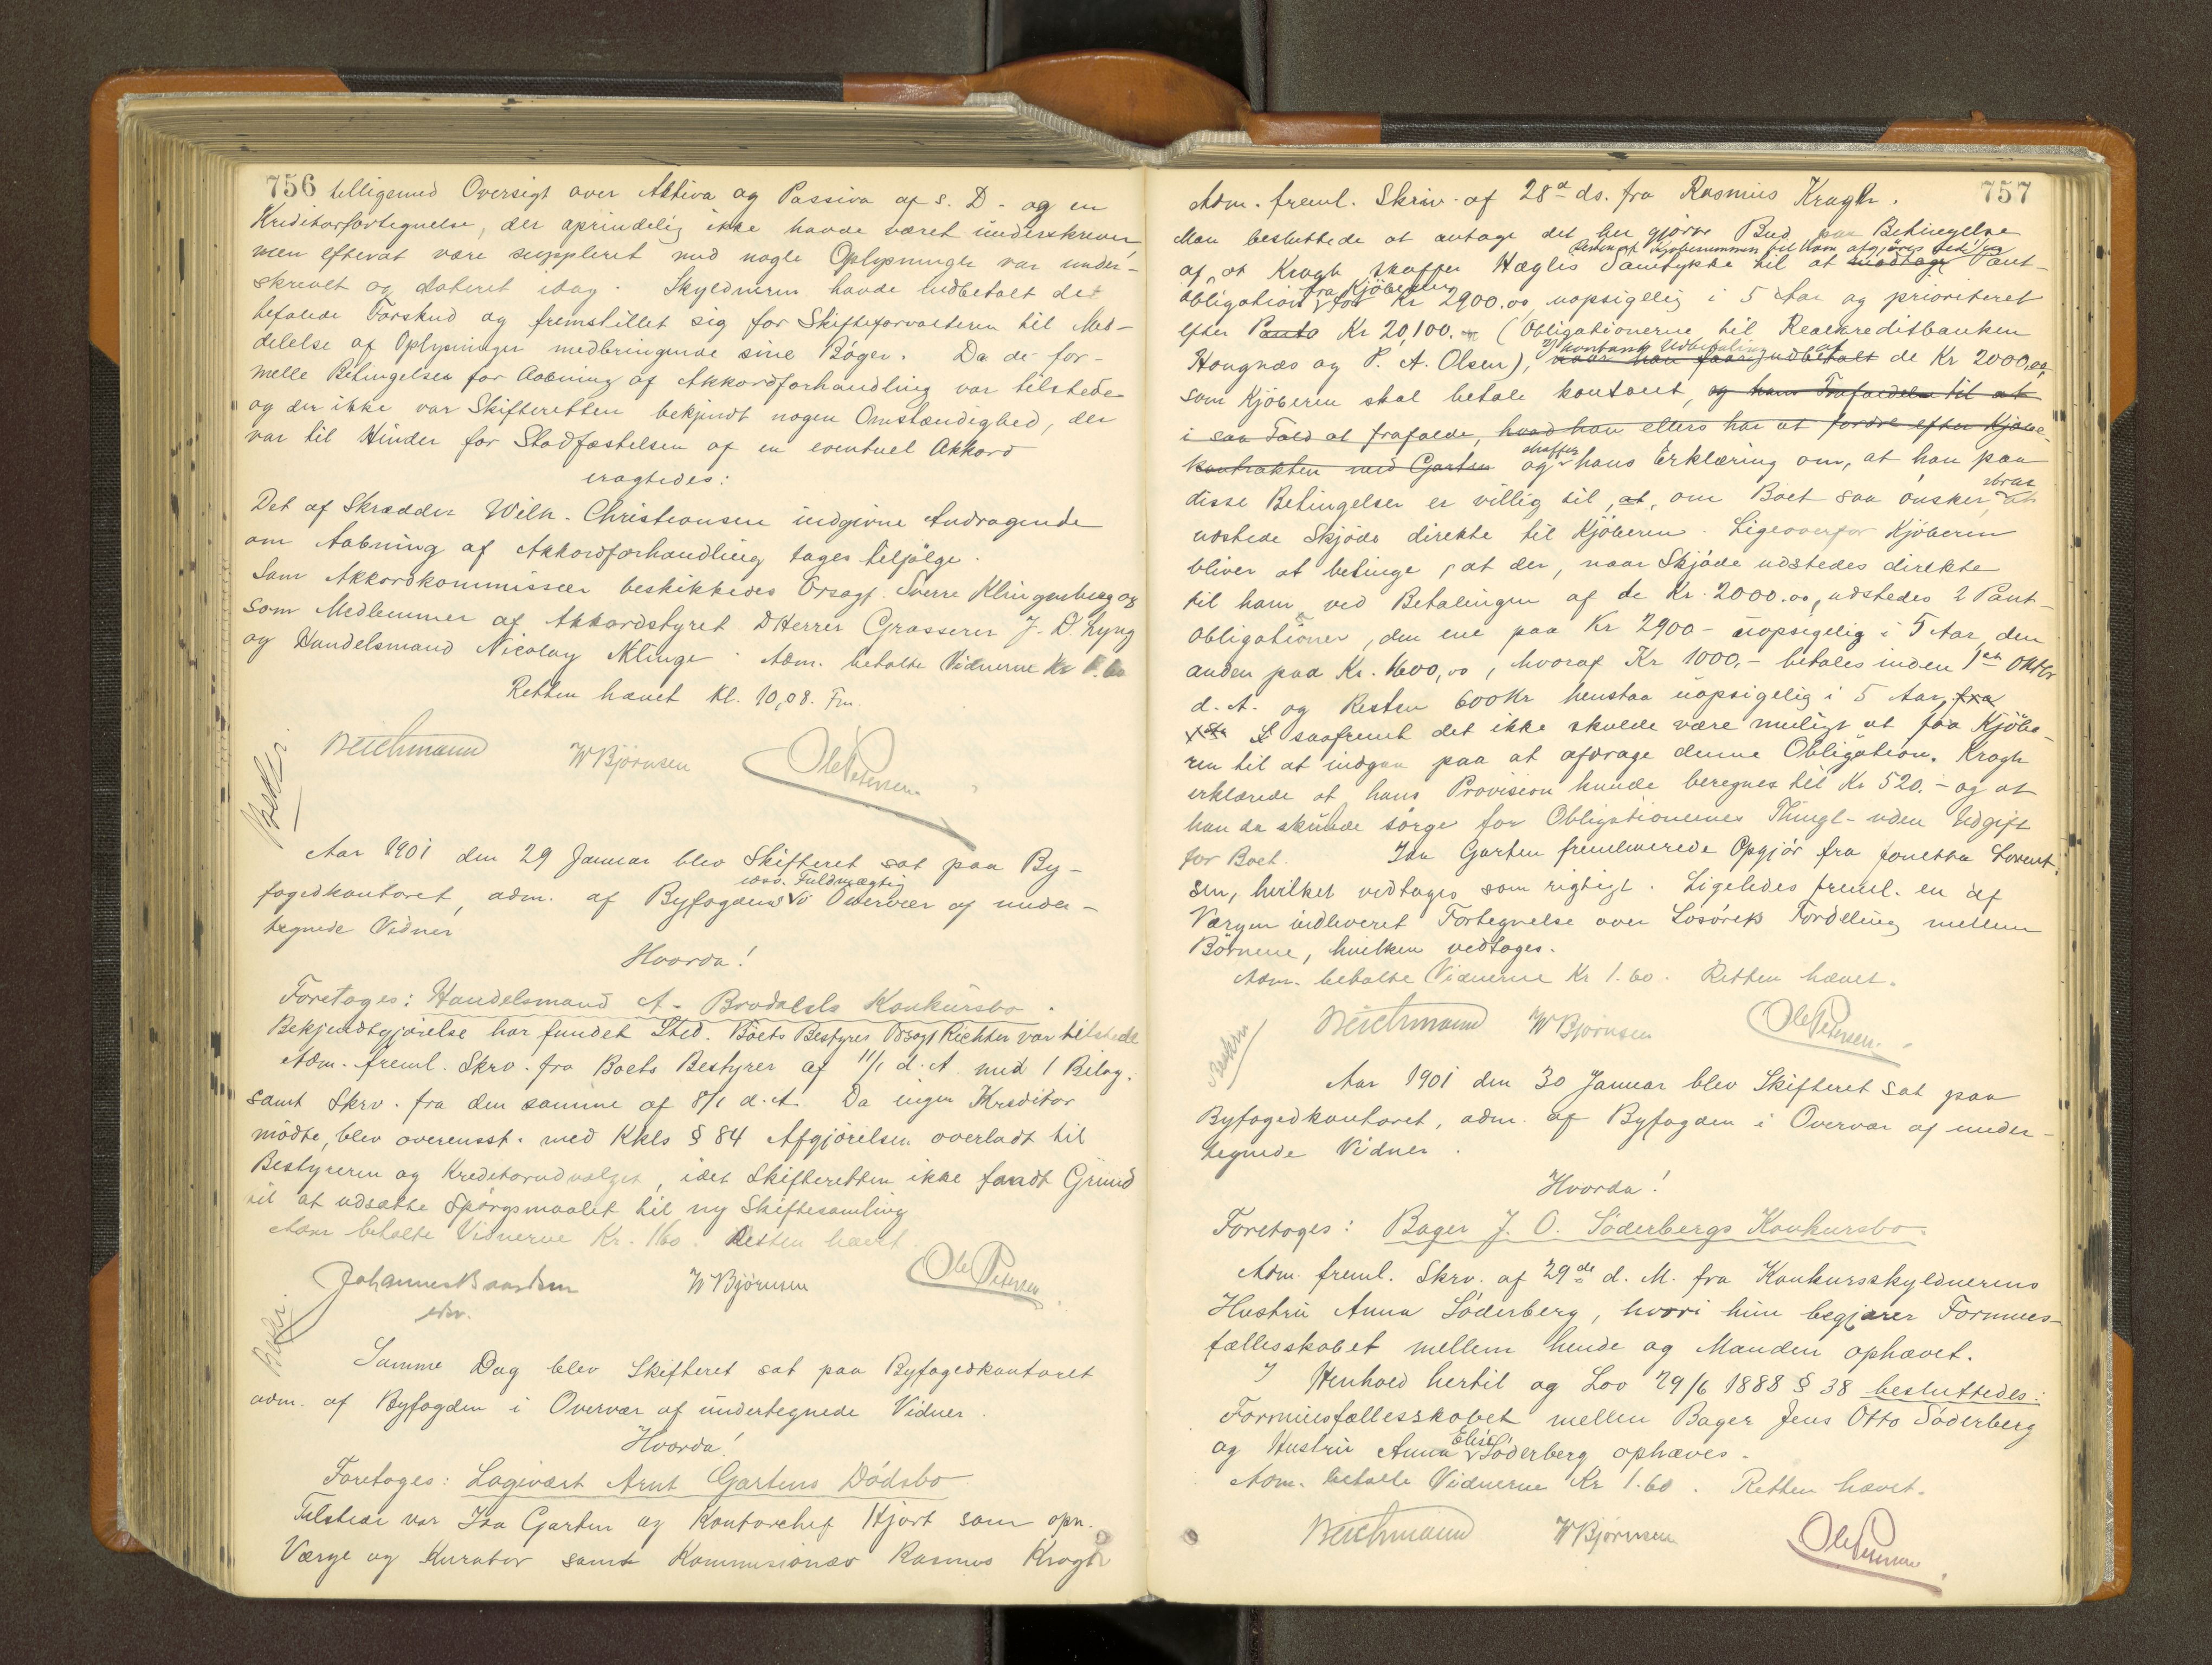 756 tilligemed Oversigt over Aktiva og Passiva af s. D. og en
Kreditorfortegnelse, der oprindelig ikke havde været underskreven
men efterat være suppleret med nogle Oplysninger var under-
skrevet og dateret idag. Skyldneren havde indbetalt det
befalede Forskud og fremstillet sig for Skifteforvalteren til Med-
delelse af Oplysninger medbringende sine Bøger. Da de for-
melle Betingelser for Aabning af Akkordforhandling var tilstede
og der ikke var Skifteretten bekjendt nogen Omstændighed, der
var til Hinder for Stadfæstelsen af en eventuel Akkord
eragtedes:
Det af Skrædder Wilh. Christiansen indgivne Andragende
om Aabning af Akkordforhandling tages tilfølge.
Som Akkordkommissær beskikkedes Orsagf. Sverre Klingenberg og
som Medlemmer af Akkordstyret DHerrer Grosserer J. D. Lyng
og Handelsmand Nicolay Klinge. Adm. betalte Vidnerne Kr
Retten hævet Kl. 10,08. Fm.
Beichmann W Bjørnsen Ole Petersen
Beskr.
Aar 1901 den 29 Januar blev Skifteret sat paa By-
fogedkontoret, adm. af Byfogdens edsv. Fuldmægtig i Overvær af under-
tegnede Vidner
Hvorda!
Foretoges: Handelsmand A. Brodahls Konkursbo.
Bekjendtgjørelse har fundet Sted. Boets Bestyrer Orsagf Richter var tilstede
Adm. freml. Skrv. fra Boets Bestyrer af 11/1 d. A. med 1 Bilag.
samt Skrv. fra den samme af 8/1 d. A. Da ingen Kreditor
mødte, blev overensst. med Kkls § 84 Afgjørelsen overladt til
Bestyreren og Kreditorudvalget, idet Skifteretten ikke fandt Grund
til at udsætte Spørgsmaalet til ny Skiftesamling
Adm betalte Vidnerne Kr. 1.60. Retten hævet.
Johannes W Bjørnsen Ole Petersen
edsv.
Beskr.
Samme Dag blev Skifteret sat paa Byfogedkontoret
adm. af Byfogden i Overvær af undertegnede Vidner.
Hvorda!
Foretoges: Logivært Arnt Gartens Dødsbo
Tilstede var Ida Garten og Kontorchef Hjort som opn.
Værge og Kurator samt Kommisionær Rasmus Kragh
757
Adm. freml. Skriv. af 28de ds. fra Rasmus Kragh.
Man besluttede at antage det her gjorte Bud paa Betingelse
af, at Kragh skaffer Hægles Samtykke til at Kjøbesummen til ham afgjøres ved modtage Pant-
obligation fra Kjøberen for Kr 2900.00 uopsigelig i 5 Aar og prioriteret
efter Kr 20,100. (Obligationerne til Realkreditbanken
Hougnæs og P. A. Olsen), kontant Udbetaling af naar han faar udbetalt de Kr 2000,00,
som Kjøberen skal betale kontant, og hans til at
i saa Fald at frafalde, hvad han ellers har at fordre efter Kjøbe-
kontrakten med Garten og skaffer hans Erklæring om, at han paa
disse Betingelser er villig til, at, om Boet saa ønsker, strax
udstede Skjøde direkte til Kjøberen. Ligeoverfor Kjøberen
bliver at betinge, at der, naar Skjøde udstedes direkte
til ham, ved Betalingen af de Kr. 2000.00, udstedes 2 Pant-
obligationer, den ene paa Kr 2900 - uopsigelig i 5 Aar, den
anden paa Kr. 1600,00, hvoraf Kr 1000,- betales inden 1ste Oktbr
d. A. og Resten 600 Kr henstaa uopsigelig i 5 Aar, fra
saafremt det ikke skulde være muligt at faa Kjøbe-
ren til at indgaa paa at afdrage denne Obligation. Kragh
erklærede at hans Provision kunde beregnes til Kr 520.- og at
han da skulde sørge for Obligationernes Thingl- uden Udgift
for Boet. Ida Garten fremleverede Opgjør fra Jonetta Lorent-
sen, hvilket vedtoges som rigtigt. Ligeledes freml. en af
Værgen indleveret Fortegnelse over Løsørets Fordeling mellem
Børnene, hvilken vedtoges.
Adm. betalte Vidnerne Kr 1.60. Retten hævet.
Beichmann W Bjørnsen Ole Petersen.
Beskr
Aar 1901 den 30 Januar blev Skifteret sat paa
Byfogedkontoret, adm. af Byfogden i Overvær af under-
tegnede Vidner.
Hvorda!
Foretoges: Bager J. O. Söderbergs Konkursbo.
Adm. freml. Skrv. af 29de d. M. fra Konkursskyldnerens
Hustru Anna Söderberg, hvori hun begjærer Formues-
fællesskabet mellem hende og Manden ophævet.
I Henhold hertil og Lov 29/6 1888 § 38 besluttedes:
Formuesfællesskabet mellem Bager Jens Otto Söderberg
og Hustru Anna Elise Söderberg ophæves.
Adm. betalte Vidnerne Kr 1.60. Retten hævet.
Beichmann W Bjørnsen Ole Petersen